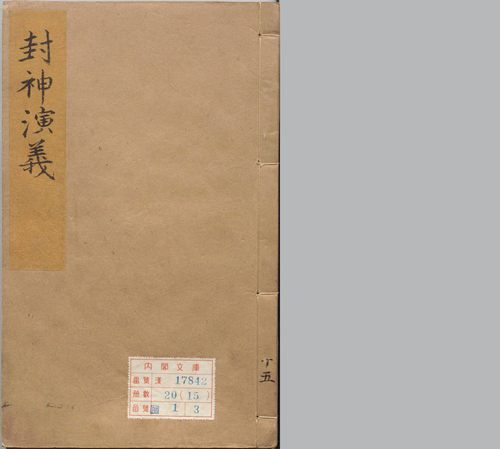 封神演義
十五
内閣文庫
番號 漢 17842
冊數 20(15)
函號 1 3